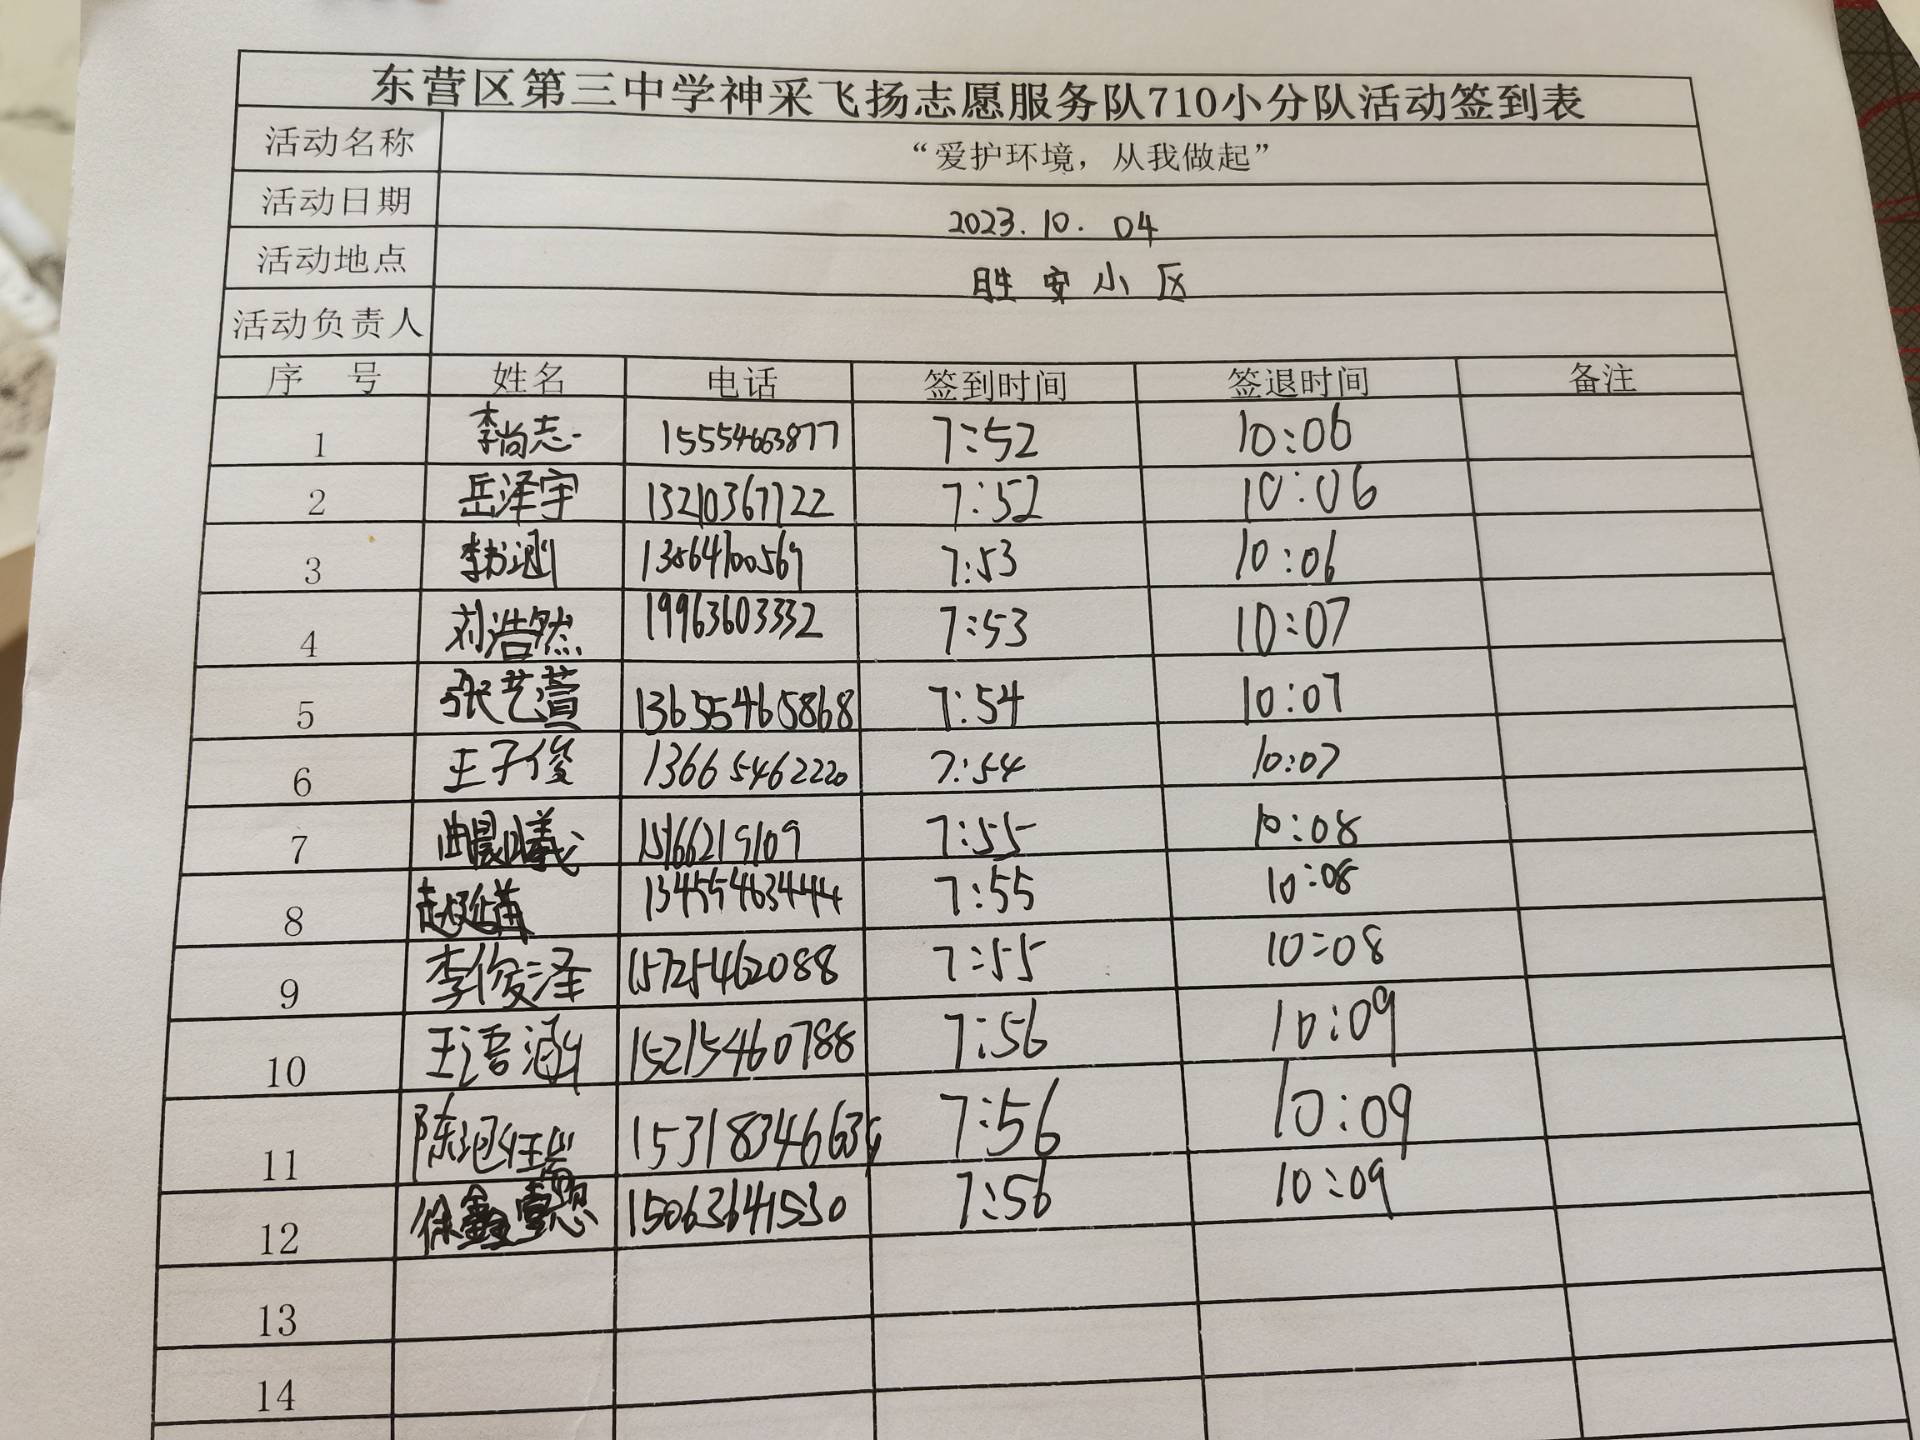 东营区第三中学神采飞扬志愿服务队710小分队活动签到表
活动名称 “爱护环境，从我做起”
活动日期 2023.10.04
活动地点 胜安小区
活动负责人
序 号 姓名 电话 签到时间 签退时间 备注
1 李尚志 15554663877 7:52 10:06
2 岳泽宇 13210367122 7:52 10:06
3 李书涵 7:53 10:06
4 刘浩然 19963603332 7:53 10:07
5 张艺萱 13655465868 7:54 10:07
6 王子俊 13665462220 7:54 10:07
7 曲晨曦 15166219109 7:55 10:08
8 13455463444 7:55 10:08
9 李俊泽 15725462088 7:55 10:08
10 王语涵 15215460788 7:56 10:09
11 7:56 10:09
12 15063641530 7:56 10:09
13
14